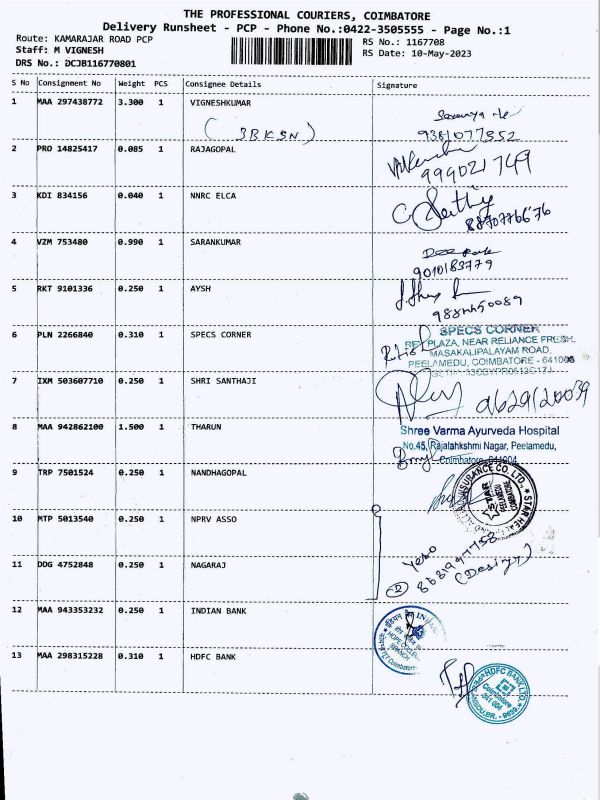 THE PROFESSIONAL COURIERS, COIMBATORE
Delivery Runsheet - PCP - Phone No.:0422-3505555 - Page No.:1
Route: KAMARAJAR ROAD PCP
Staff: M VIGNESH
DRS No.: DCJB116770801
RS No.: 1167708
RS Date: 10-May-2023
S No Consignment No Weight PCS Consignee Details Signature
1 MAA 297438772 3.300 1 VIGNESHKUMAR
2 PRO 14825417 0.085 1 RAJAGOPAL
3 KDI 834156 0.040 1 NNRC ELCA
8870776676
4 VZM 753480 0.990 1 SARANKUMAR
Deepak
9010183779
5 RKT 9101336 0.250 1 AYSH
6 PLN 2266840 0.310 1 SPECS CORNER
SPECS CORNER
PLAZA, NEAR RELIANCE FRESH,
MASAKALIPALAYAM ROAD,
PEELAMEDU, COIMBATORE - 641008
7 IXM 503607710 0.250 1 SHRI SANTHAJI
8 MAA 942862100 1.500 1 THARUN
Shree Varma Ayurveda Hospital
No.45, Rajalahkshmi Nagar, Peelamedu,
Coimbatore
9 TRP 7501524 0.250 1 NANDHAGOPAL
10 MTP 5013540 0.250 1 NPRV ASSO
11 DDG 4752848 0.250 1 NAGARAJ
12 MAA 943353232 0.250 1 INDIAN BANK
13 MAA 298315228 0.310 1 HDFC BANK
HDFC BANK LTD.
Coimbatore
641 004